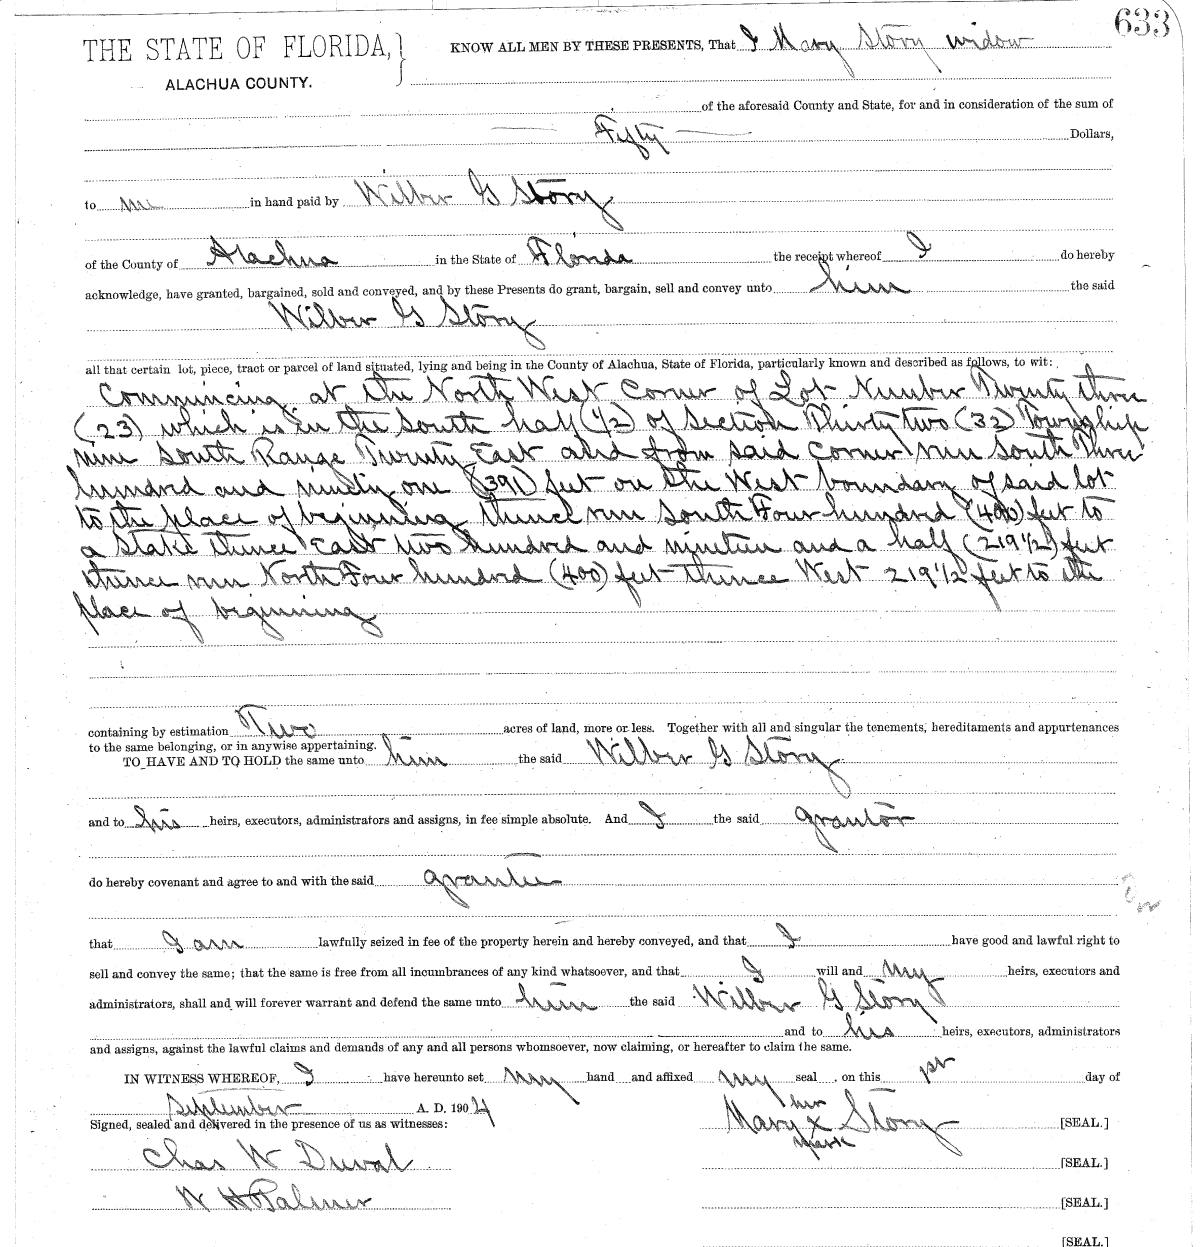 633
THE STATE OF FLORIDA, KNOW ALL MEN BY THESE PRESENTS, That I Mary Story widow
ALACHUA COUNTY.
of the aforesaid County and State, for and in consideration of the sum of
Fifty Dollars,
to me in hand paid by Wilber G Story
of the County of Alachua in the State of Florida the receipt whereof I do hereby
acknowledge, have granted, bargained, sold and conveyed, and by these Presents do grant, bargain, sell and convey unto him the said
Wilber G Story
all that certain lot, piece, tract or parcel of land situated, lying and being in the County of Alachua, State of Florida, particularly known and described as follows, to wit:
Commencing at the North West Corner of Lot Number Twenty three
(23) which is in the South half (1/2) of Section Thirty two (32) Township
nine South Range Twenty East and from said corner run South Three
hundred and ninety one (391) feet on the West boundary of said lot
to the place of beginning thence run South Four hundred (400) feet to
a Stake thence East two hundred and nineteen and a half (219 1/2) feet
thence run North Four hundred (400) feet thence West 219 1/2 feet to the
place of beginning
containing by estimation Two acres of land, more or less. Together with all and singular the tenements, hereditaments and appurtenances
to the same belonging, or in anywise appertaining.
TO HAVE AND TO HOLD the same unto him the said Wilber G Story
and to his heirs, executors, administrators and assigns, in fee simple absolute. And I the said grantor
do hereby covenant and agree to and with the said grantee
that I am lawfully seized in fee of the property herein and hereby conveyed, and that I have good and lawful right to
sell and convey the same; that the same is free from all incumbrances of any kind whatsoever, and that I will and my heirs, executors and
administrators, shall and will forever warrant and defend the same unto him the said Wilber G Story
and to his heirs, executors, administrators
and assigns, against the lawful claims and demands of any and all persons whomsoever, now claiming, or hereafter to claim the same.
IN WITNESS WHEREOF, I have hereunto set my hand and affixed my seal on this 1st day of
September A. D. 1904
her
Signed, sealed and delivered in the presence of us as witnesses: Mary x Story [SEAL.]
mark
Chas W Duval [SEAL.]
W H Palmer [SEAL.]
[SEAL.]